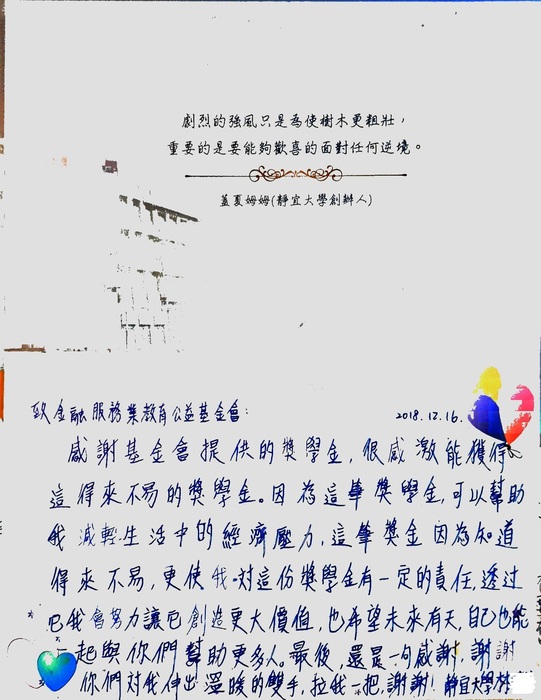 劇烈的強風只是為使樹木更粗壯，
重要的是要能夠歡喜的面對任何逆境。
蓋夏姆姆(靜宜大學創辦人)
致金融服務業教育公益基金會：
2018.12.16.
感謝基金會提供的獎學金，很感激能獲得
這得來不易的獎學金。因為這筆獎學金，可以幫助
我減輕生活中的經濟壓力，這筆獎金因為知道
得來不易，更使我對這份獎學金有一定的責任，透過
它我會努力讓它創造更大價值，也希望未來有天，自己也能
一起與你們幫助更多人。最後，還是一句感謝，謝謝
你們對我伸出溫暖的雙手，拉我一把，謝謝！靜宜大學林